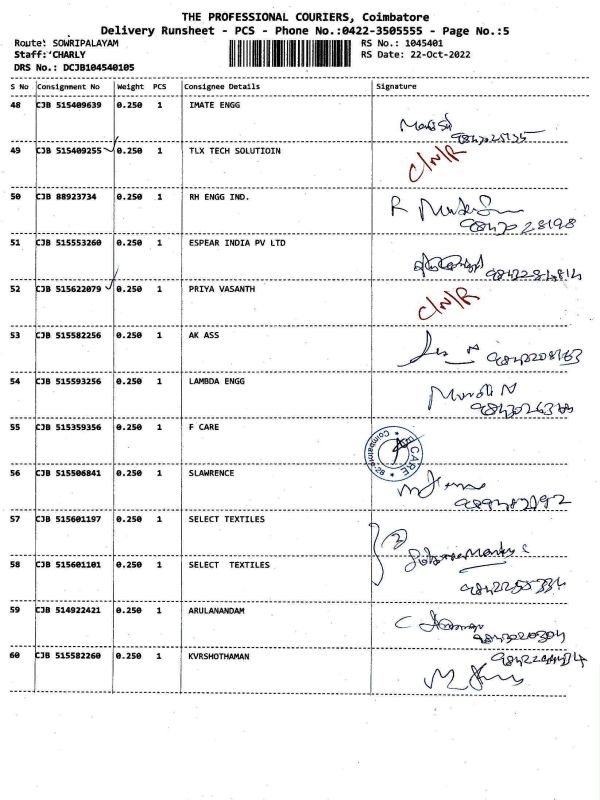 THE PROFESSIONAL COURIERS, Coimbatore
Delivery Runsheet - PCS - Phone No.:0422-3505555 - Page No.:5
Route: SOWRIPALAYAM RS No.: 1045401
Staff: CHARLY RS Date: 22-Oct-2022
DRS No.: DCJB104540105
S No Consignment No Weight PCS Consignee Details Signature
48 CJB 515409639 0.250 1 IMATE ENGG
49 CJB 515409255 0.250 1 TLX TECH SOLUTIOIN C/N/R
50 CJB 88923734 0.250 1 RH ENGG IND. R
9843028198
51 CJB 515553260 0.250 1 ESPEAR INDIA PV LTD
52 CJB 515622079 0.250 1 PRIYA VASANTH C/N/R
53 CJB 515582256 0.250 1 AK ASS
54 CJB 515593256 0.250 1 LAMBDA ENGG
55 CJB 515359356 0.250 1 F CARE
56 CJB 515506841 0.250 1 SLAWRENCE
57 CJB 515601197 0.250 1 SELECT TEXTILES
58 CJB 515601101 0.250 1 SELECT TEXTILES
59 CJB 514922421 0.250 1 ARULANANDAM
60 CJB 515582260 0.250 1 KVRSHOTHAMAN